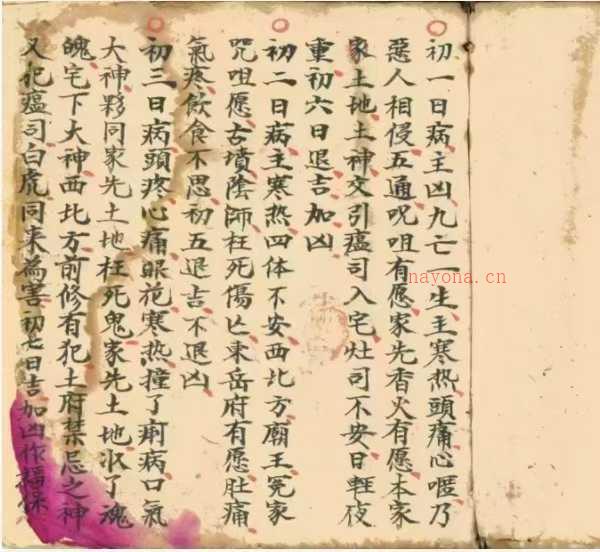 初一日病主凶九亡一生主寒热頭痛心啀乃
惡人相侵五通呪咀有愿家先香火有愿本家
家土地土神交引瘟司入宅灶司不安日輕夜
重初六日退吉加凶
初二日病主寒热四体不安西北方廟王冤家
咒咀愿古墳陰師枉死傷亡東岳府有愿肚痛
氣疼飲食不思初五退吉不退凶
初三日病頭疼心痛眼花寒热撞了痢病口氣
大神夥同家先土地枉死鬼家先土地収了魂
魄宅下大神西北方前修有犯土府禁忌之神
又犯瘟司白虎同来為害初七日吉加凶作福保
nayona.cn